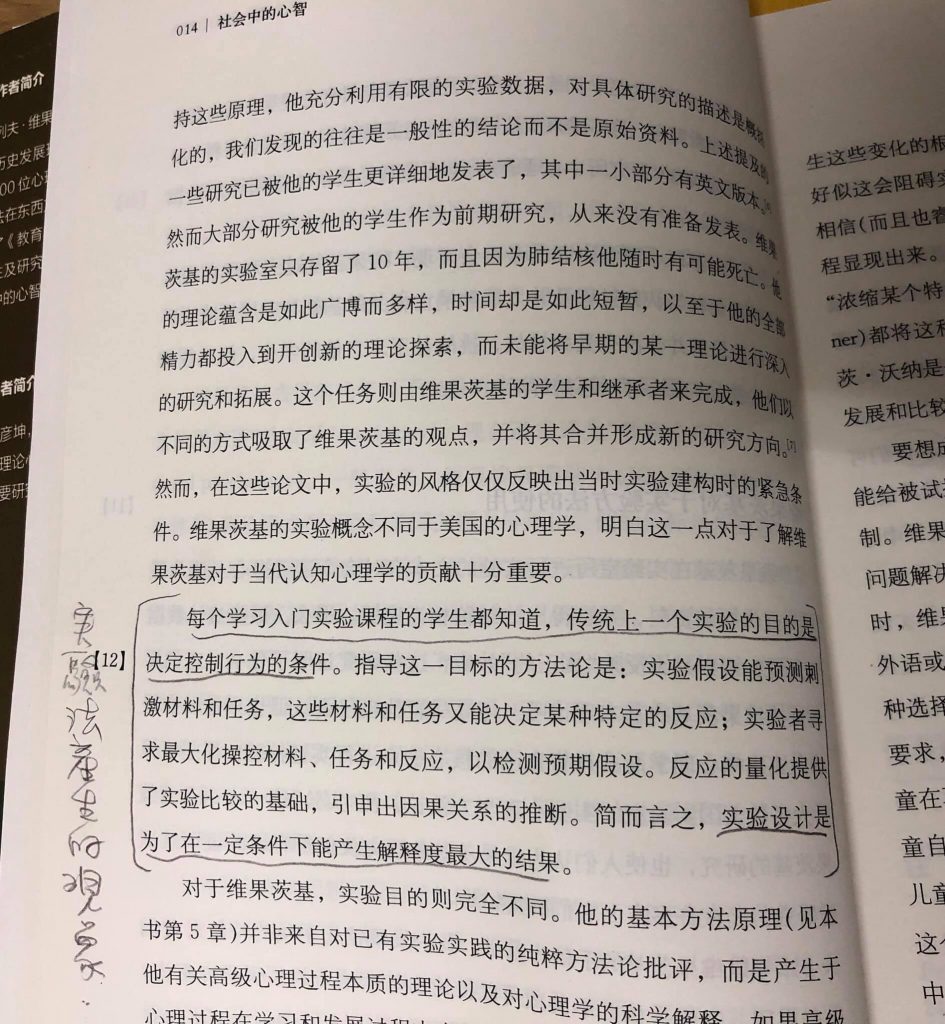 014 | 社会中的心智
持这些原理，他充分利用有限的实验数据，对具体研究的描述是概括
化的，我们发现的往往是一般性的结论而不是原始资料。上述提及的
一些研究已被他的学生更详细地发表了，其中一小部分有英文版本。[6]
然而大部分研究被他的学生作为前期研究，从来没有准备发表。维果
茨基的实验室只存留了 10 年，而且因为肺结核他随时有可能死亡。他
的理论蕴含是如此广博而多样，时间却是如此短暂，以至于他的全部
精力都投入到开创新的理论探索，而未能将早期的某一理论进行深入
的研究和拓展。这个任务则由维果茨基的学生和继承者来完成，他们以
不同的方式吸取了维果茨基的观点，并将其合并形成新的研究方向。[7]
然而，在这些论文中，实验的风格仅仅反映出当时实验建构时的紧急条
件。维果茨基的实验概念不同于美国的心理学，明白这一点对于了解维
果茨基对于当代认知心理学的贡献十分重要。
每个学习入门实验课程的学生都知道，传统上一个实验的目的是
【12】
决定控制行为的条件。指导这一目标的方法论是：实验假设能预测刺
激材料和任务，这些材料和任务又能决定某种特定的反应；实验者寻
求最大化操控材料、任务和反应，以检测预期假设。反应的量化提供
了实验比较的基础，引申出因果关系的推断。简而言之，实验设计是
为了在一定条件下能产生解释度最大的结果。
对于维果茨基，实验目的则完全不同。他的基本方法原理(见本
书第 5 章)并非来自对已有实验实践的纯粹方法论批评，而是产生于
他有关高级心理过程本质的理论以及对心理学的科学解释。如果高级
心理过程在学习和发展过程中
实验法产生的
作者简介
列夫·维果
历史发展
00 位心理
法在东西
《教育
及研究
中的心智
者简介
彦坤，
理论
要研
生这些变化的根
好似这会阻碍实
相信(而且也
程显现出来。
“浓缩某个特
ner)都将这种
茨·沃纳是
发展和比较
要想成
能给被试
制。维果
问题解决
时，维果
外语或
种选择
要求，
童在
童自
儿童
这个
中